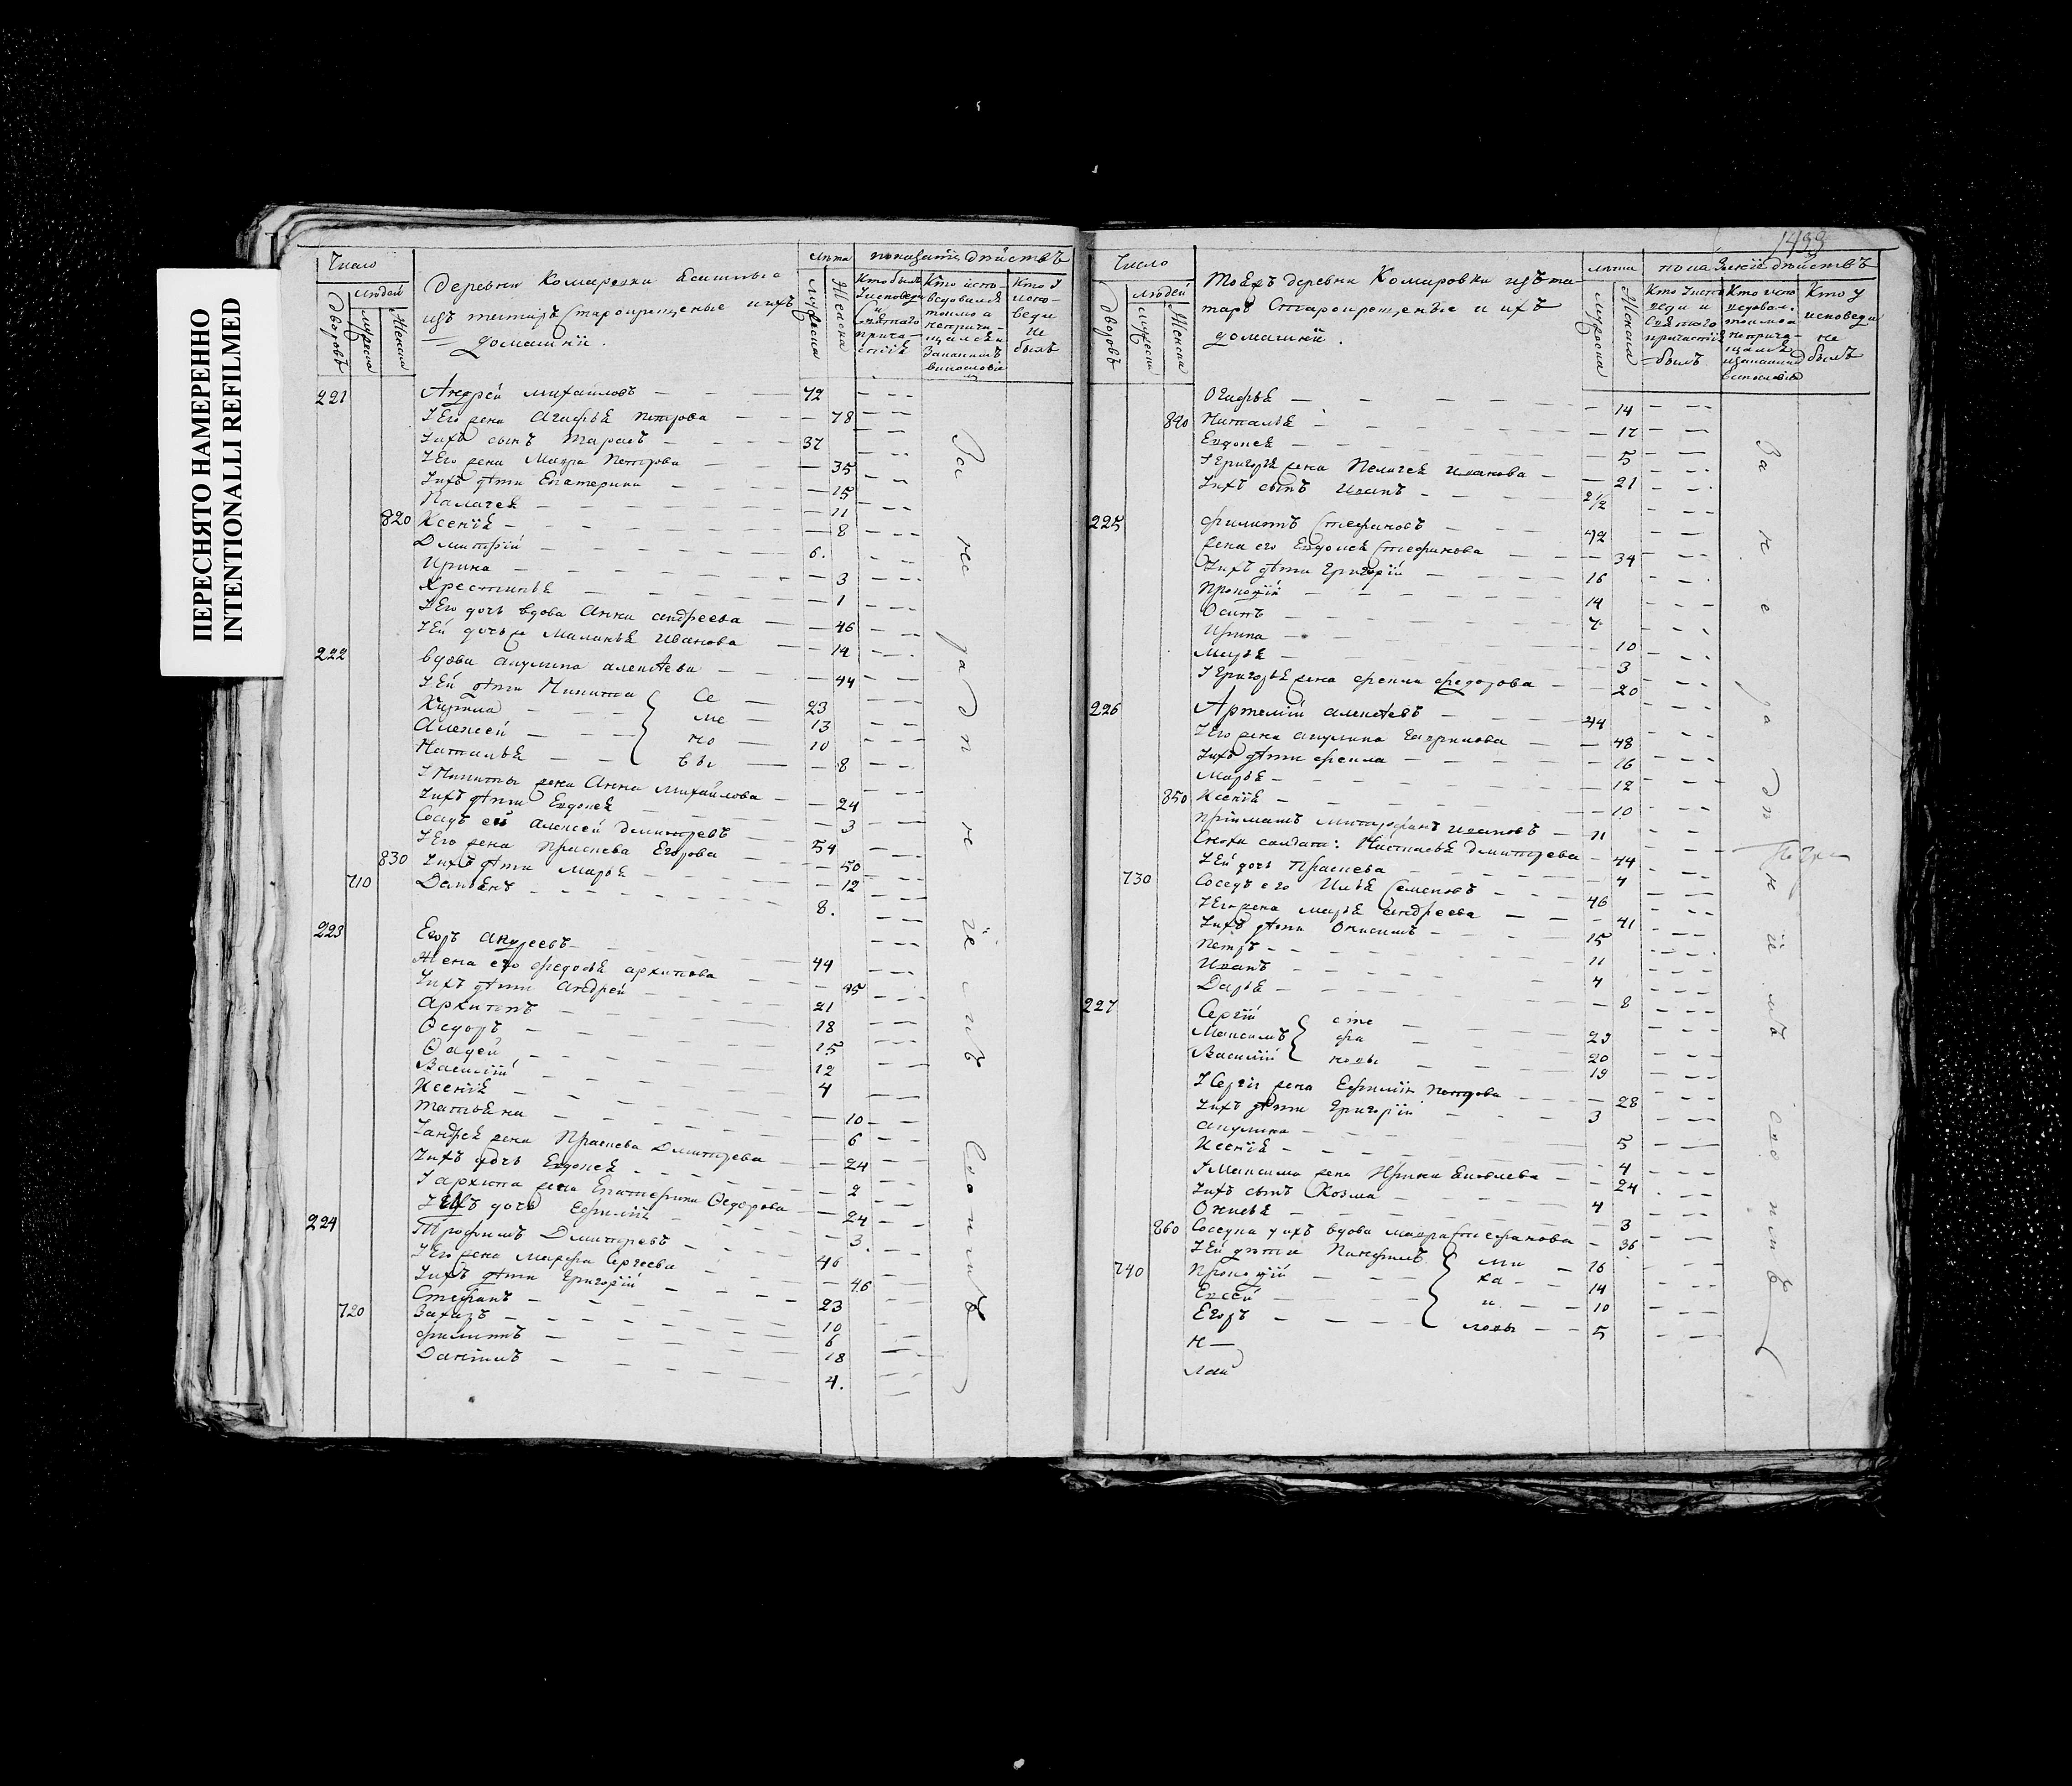 ПЕРЕСНЯТО НАМЕРЕННО
INTENTIONALLI REFILMED
Число
людей
дворовъ
мужеска
Женска
Деревни Комаровки Ясашные
изъ татаръ Старокрещеные и ихъ
домашнїи.
лѣта
Мужеска
Женска
показанїе дѣйствъ
Кто былъ
Кто испо-
ведовался
токмо а
неприча-
щался и
Кто у
испо-
веди
не
былъ
221 Андрей михайловъ 72
I Его жена Агафья петрова 78
Iихъ сынъ Тарасъ 37
I Его жена Мавра Петрова 35
Iихъ дѣти Екатерина 15
Палагея 11
820 Ксенїя 8
Димитрїй 6.
Ирина 3
Хрестинья 1
I Его дочь вдова Анна андреева 46
I Ей дочь Маланья иванова 14
222 вдова акулина алексѣева 44
I Ей дѣти Никита 23
Се
ме
но
вы
13
Алексей 10
Наталья 8
I Никиты жена Анна Михайлова 24
Iихъ дѣти Евдокея 3
Соседъ ей алексей димитревъ 54
I Его жена Праскева Егорова 50
830 Iихъ дѣти Марья 12
710 Демьянъ 8.
223 Егоръ андреевъ 44
Жена его федосья архипова 45
Iихъ дѣти андрей 21
архиппъ 18
Ѳедоръ 15
Ѳадей 12
Василїй 4
Ксенїя 10
татьяна 6
Iандрея жена Праскева Димитрева 24
Iихъ дочь Евдокея 2
I архипа жена Екатерина Ѳедорова 24
дочь Ефимїя 3.
224 Трофимъ Димитревъ 46
I Его жена марфа Сергеева 46
Iихъ дѣти григорїй 23
Стефанъ 10
720 Захаръ 6
филиппъ 18
Данїилъ 4.
За не радѣнїемъ своимъ
1433
Число
людей
дворовъ
мужеска
Женска
тояжъ деревни Комаровки изъ та-
таръ Старокрещеные и ихъ
домашнїи.
лѣта
Мужеска
Женска
показанїе дѣйствъ
Кто у
исповеди
не
былъ
Огафья 14
840 Наталья 17
Евдокея 5
I Григорья жена Пелагея иванова 21
Iихъ сынъ иванъ 2 1/2
225 филиппъ Стефановъ 42
жена его Евдокея Стефанова 34
Iихъ дѣти григорїй 16
Прокофїй 14
Осипъ 7
Ирина 10
Марья 3
I Григорья жена фекла федорова 20
226 Артемїй алексѣевъ 44
I Его жена акулина гаврилова 48
Iихъ дѣти фекла 16
Марья 12
850 Ксенїя 10
прїимашъ митрофанъ ивановъ 11
Сноха солдат: Настасья димитрева 44
I Ей дочь Праскева 4
730 Соседъ его Илья Семеновъ 46
I Его жена марья андреева 41
Iихъ дѣти Онисимъ 15
Петръ 11
Иванъ 4
Дарья 8
227 Сергїй 23
Максимъ 20
Василїй 19
сте
фа
новы
I Сергїя жена Ефимїя петрова 28
Iихъ дѣти григорїй 3
акулина 5
Ксенїя 4
I Максима жена Ирина Яковлева 24
Iихъ сынъ Козма 4
Оксинья 3
860 Соседка у ихъ вдова мавра Стефанова 36
I Ей дѣти Панфилъ 16
740 Прокофїй 14
Евсей 10
Егоръ 5
ми
ха
и
ловы
Н—
лаи
За не радѣнїемъ своимъ